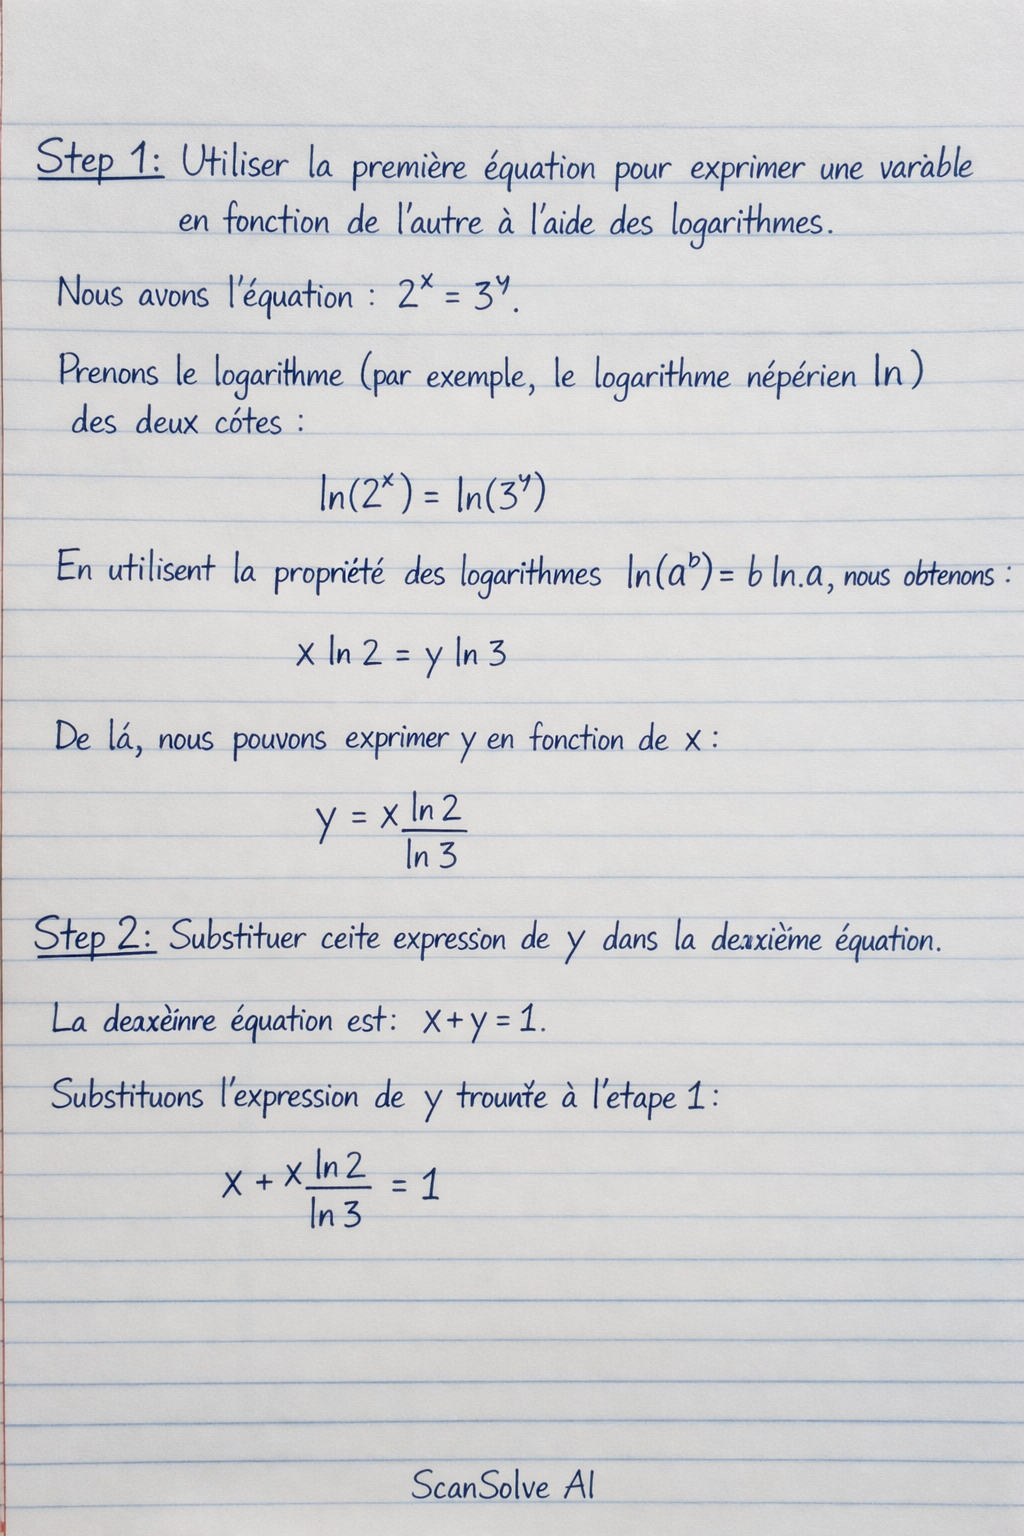 Step 1: Utiliser la première équation pour exprimer une varàble
en fonction de l'autre à l'aide des logarithmes.
Nous avons l'équation : 2^x = 3^y.
Prenons le logarithme (par exemple, le logarithme népérien ln)
des deux cótes :
ln(2^x) = ln(3^y)
En utilisent la propriété des logarithmes ln(a^b) = b ln.a, nous obtenons :
x ln 2 = y ln 3
De lá, nous pouvons exprimer y en fonction de x :
y = x ln 2 / ln 3
Step 2: Substituer ceite expression de y dans la équation.
La équation est: x + y = 1.
Substituons l'expression de y à l'etape 1:
x + x ln 2 / ln 3 = 1
ScanSolve AI